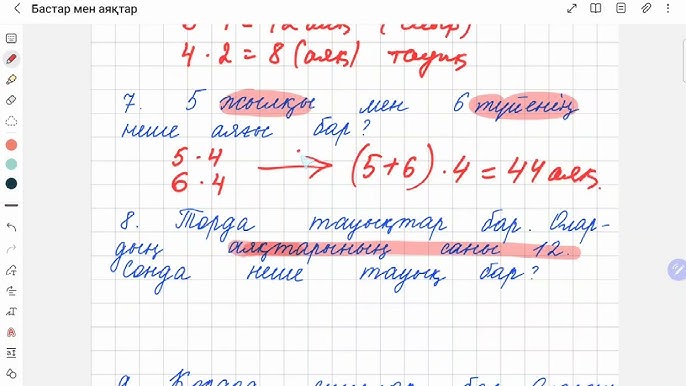 Бастар мен аяқтар
4 · 2 = 8 (аяқ) тауық
7. 5 жылқы мен 6 түйенің
неше аяғы бар?
5 · 4
6 · 4
(5+6) · 4 = 44 аяқ.
8. Торда тауықтар бар. Олар-
дың аяқтарының саны 12.
Сонда неше тауық бар?